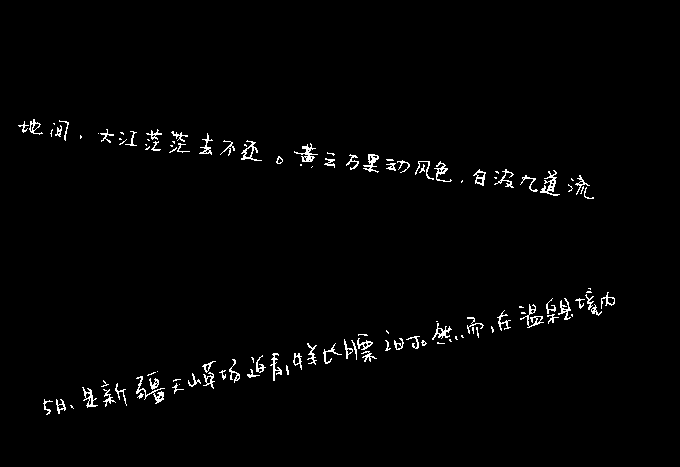 地间，大江茫茫去不还。黄云万里动风色，白波九道流
5月，是新疆天山草场返青，牛羊长膘的。然而，在温泉县境内